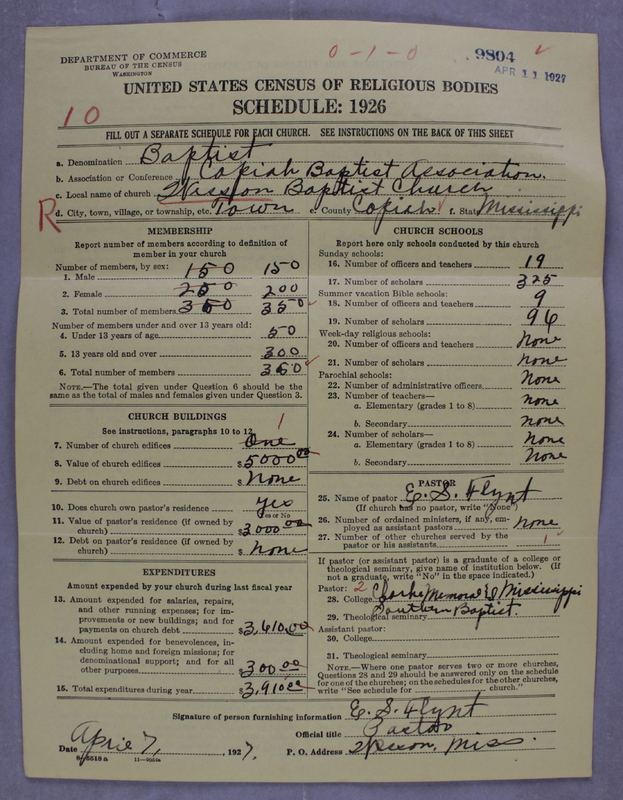 0-1-0
9804
APR 11 1927
DEPARTMENT OF COMMERCE
BUREAU OF THE CENSUS
WASHINGTON
UNITED STATES CENSUS OF RELIGIOUS BODIES
SCHEDULE: 1926
10
FILL OUT A SEPARATE SCHEDULE FOR EACH CHURCH. SEE INSTRUCTIONS ON THE BACK OF THIS SHEET
a. Denomination Baptist
b. Association or Conference Copiah Baptist Association.
c. Local name of church Wesson Baptist Church
R
d. City, town, village, or township, etc. Town e. County Copiah f. State Mississippi
MEMBERSHIP
Report number of members according to definition of
member in your church
Number of members, by sex:
1. Male 150 150
2. Female 250 200
3. Total number of members 350 350
Number of members under and over 13 years old:
4. Under 13 years of age 50
5. 13 years old and over 300
6. Total number of members 350
NOTE.—The total given under Question 6 should be the
same as the total of males and females given under Question 3.
CHURCH BUILDINGS
See instructions, paragraphs 10 to 12
7. Number of church edifices One 1
8. Value of church edifices $5000.00
9. Debt on church edifices $None
10. Does church own pastor's residence yes
Yes or No
11. Value of pastor's residence (if owned by
church) $3000.00
12. Debt on pastor's residence (if owned by
church) $None
EXPENDITURES
Amount expended by your church during last fiscal year
13. Amount expended for salaries, repairs,
and other running expenses; for im-
provements or new buildings; and for
payments on church debt $3,610.00
14. Amount expended for benevolences, in-
cluding home and foreign missions; for
denominational support; and for all
other purposes $300.00
15. Total expenditures during year $3,910.00
CHURCH SCHOOLS
Report here only schools conducted by this church
Sunday schools:
16. Number of officers and teachers 19
17. Number of scholars 325
Summer vacation Bible schools:
18. Number of officers and teachers 9
19. Number of scholars 96
Week-day religious schools:
20. Number of officers and teachers None
21. Number of scholars None
Parochial schools:
22. Number of administrative officers None
23. Number of teachers—
a. Elementary (grades 1 to 8) None
b. Secondary None
24. Number of scholars—
a. Elementary (grades 1 to 8) None
b. Secondary None
PASTOR
25. Name of pastor E. S. Flynt
(If church has no pastor, write "None")
26. Number of ordained ministers, if any, em-
ployed as assistant pastors None
27. Number of other churches served by the
pastor or his assistants 1
If pastor (or assistant pastor) is a graduate of a college or
theological seminary, give name of institution below. (If
not a graduate, write "No" in the space indicated.)
Pastor: 2
28. College Clarke Memorial & Mississippi
29. Theological seminary Southern Baptist.
Assistant pastor:
30. College
31. Theological seminary
NOTE.—Where one pastor serves two or more churches,
Questions 28 and 29 should be answered only on the schedule
for one of the churches; on the schedules for the other churches,
write "See schedule for church."
Signature of person furnishing information E. S. Flynt
Official title Pastor
Date April 7, , 1927. P. O. Address Wesson, Miss.
8-5518 a 11-9554a